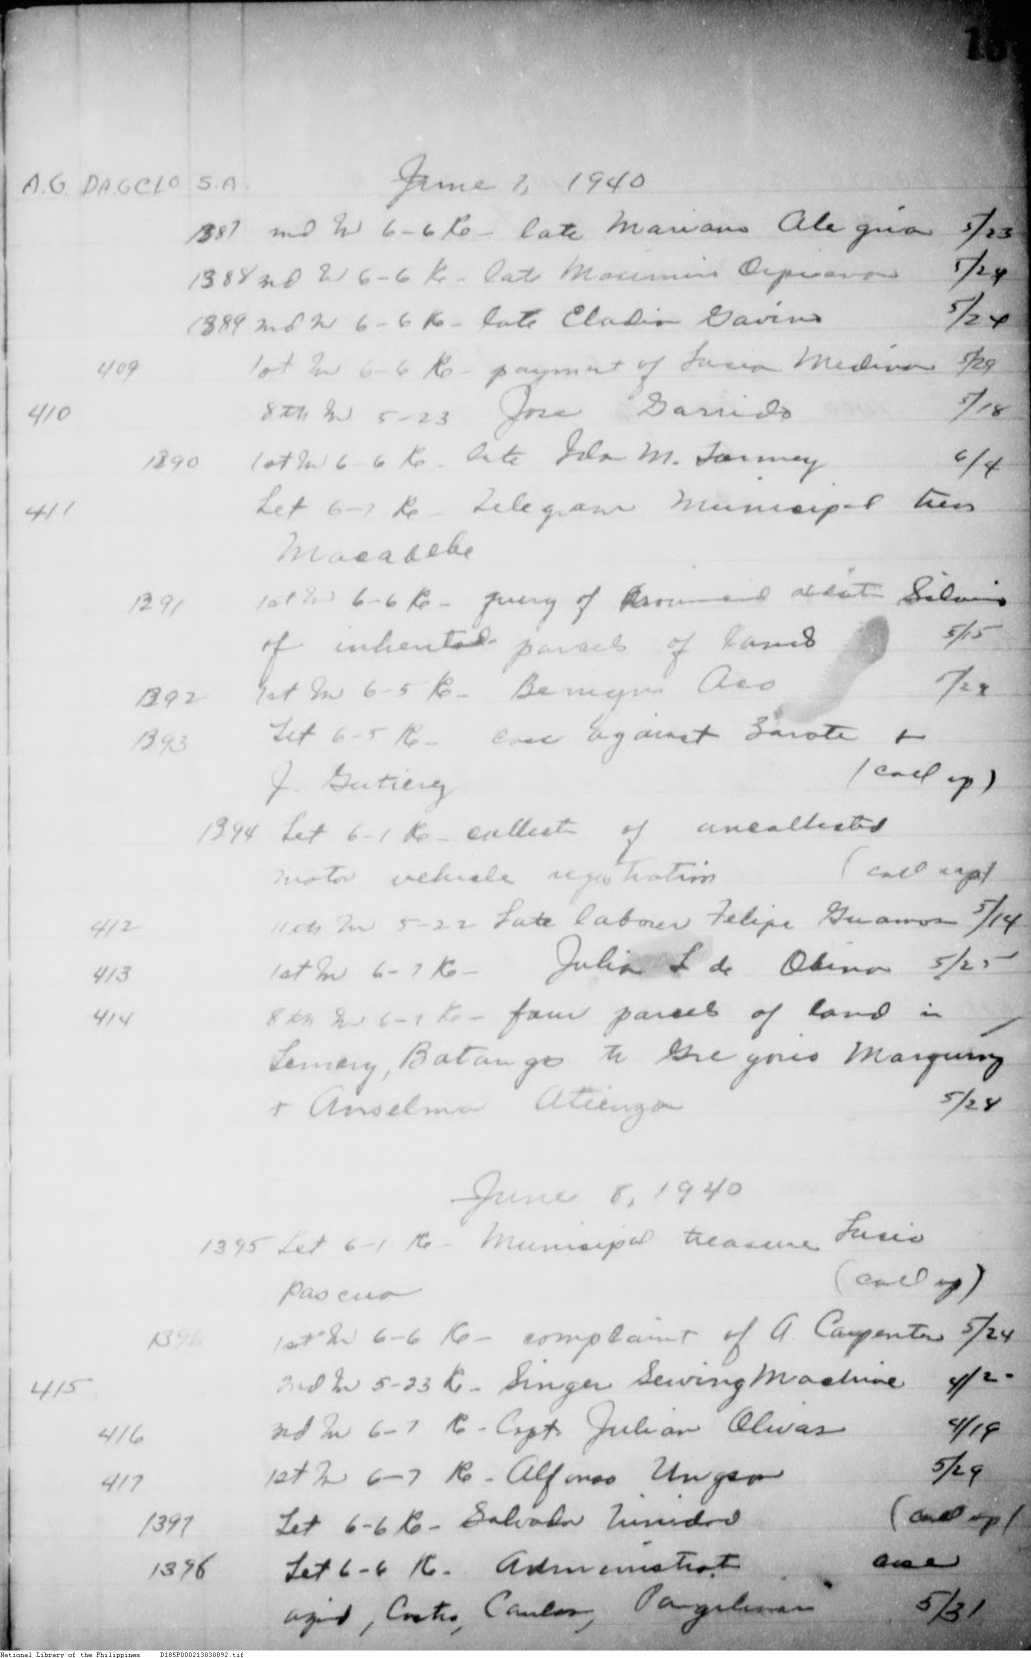 A.G. DAGCLO S.A. June 7, 1940
1387 2nd In 6-6 Re- late Mariano Alegria 5/23
1388 2nd In 6-6 Re- late 5/24
1389 2nd In 6-6 Re- late Eladio Gavino 5/24
409 1st In 6-6 Re- payment of Lucia Medina 5/29
410 8th In 5-23 Jose Garrido 5/18
1390 1st In 6-6 Re- late Ida M. 6/4
411 Let 6-7 Re- Telegram Municipal treas
Macabebe
1391 1st In 6-6 Re- query of Silvino
of inherited parcels of land 5/15
1392 1st In 6-5 Re- Benigno Aco
1393 Let 6-5 Re- case against Zarate +
J. Gutierez (call up)
1394 Let 6-1 Re- collectn of uncollected
motor vehicle registration (call up)
412 11th In 5-22 late laborer Felipe 5/14
413 1st In 6-7 Re- Julia L de Olino 5/25
414 8th In 6-7 Re- four parcels of land in
Lemery, Batangas to Gregorio
+ Anselma Atienza 5/28
June 8, 1940
1395 Let 6-1 Re- Municipal treasurer Lucio
Pascua (call up)
1396 1st In 6-6 Re- complaint of A. Carpenter 5/24
415 2nd In 5-23 Re- Singer Sewing Machine 4/2-
416 2nd In 6-7 Re- Capt Julian Olivas 4/19
417 1st In 6-7 Re- Alfonso Ungson 5/29
1397 Let 6-6 Re- Salvador Trinidad (call up)
1396 Let 6-6 Re- Administrat. case
5/31
National Library of the Philippines D185P000213830892.tif